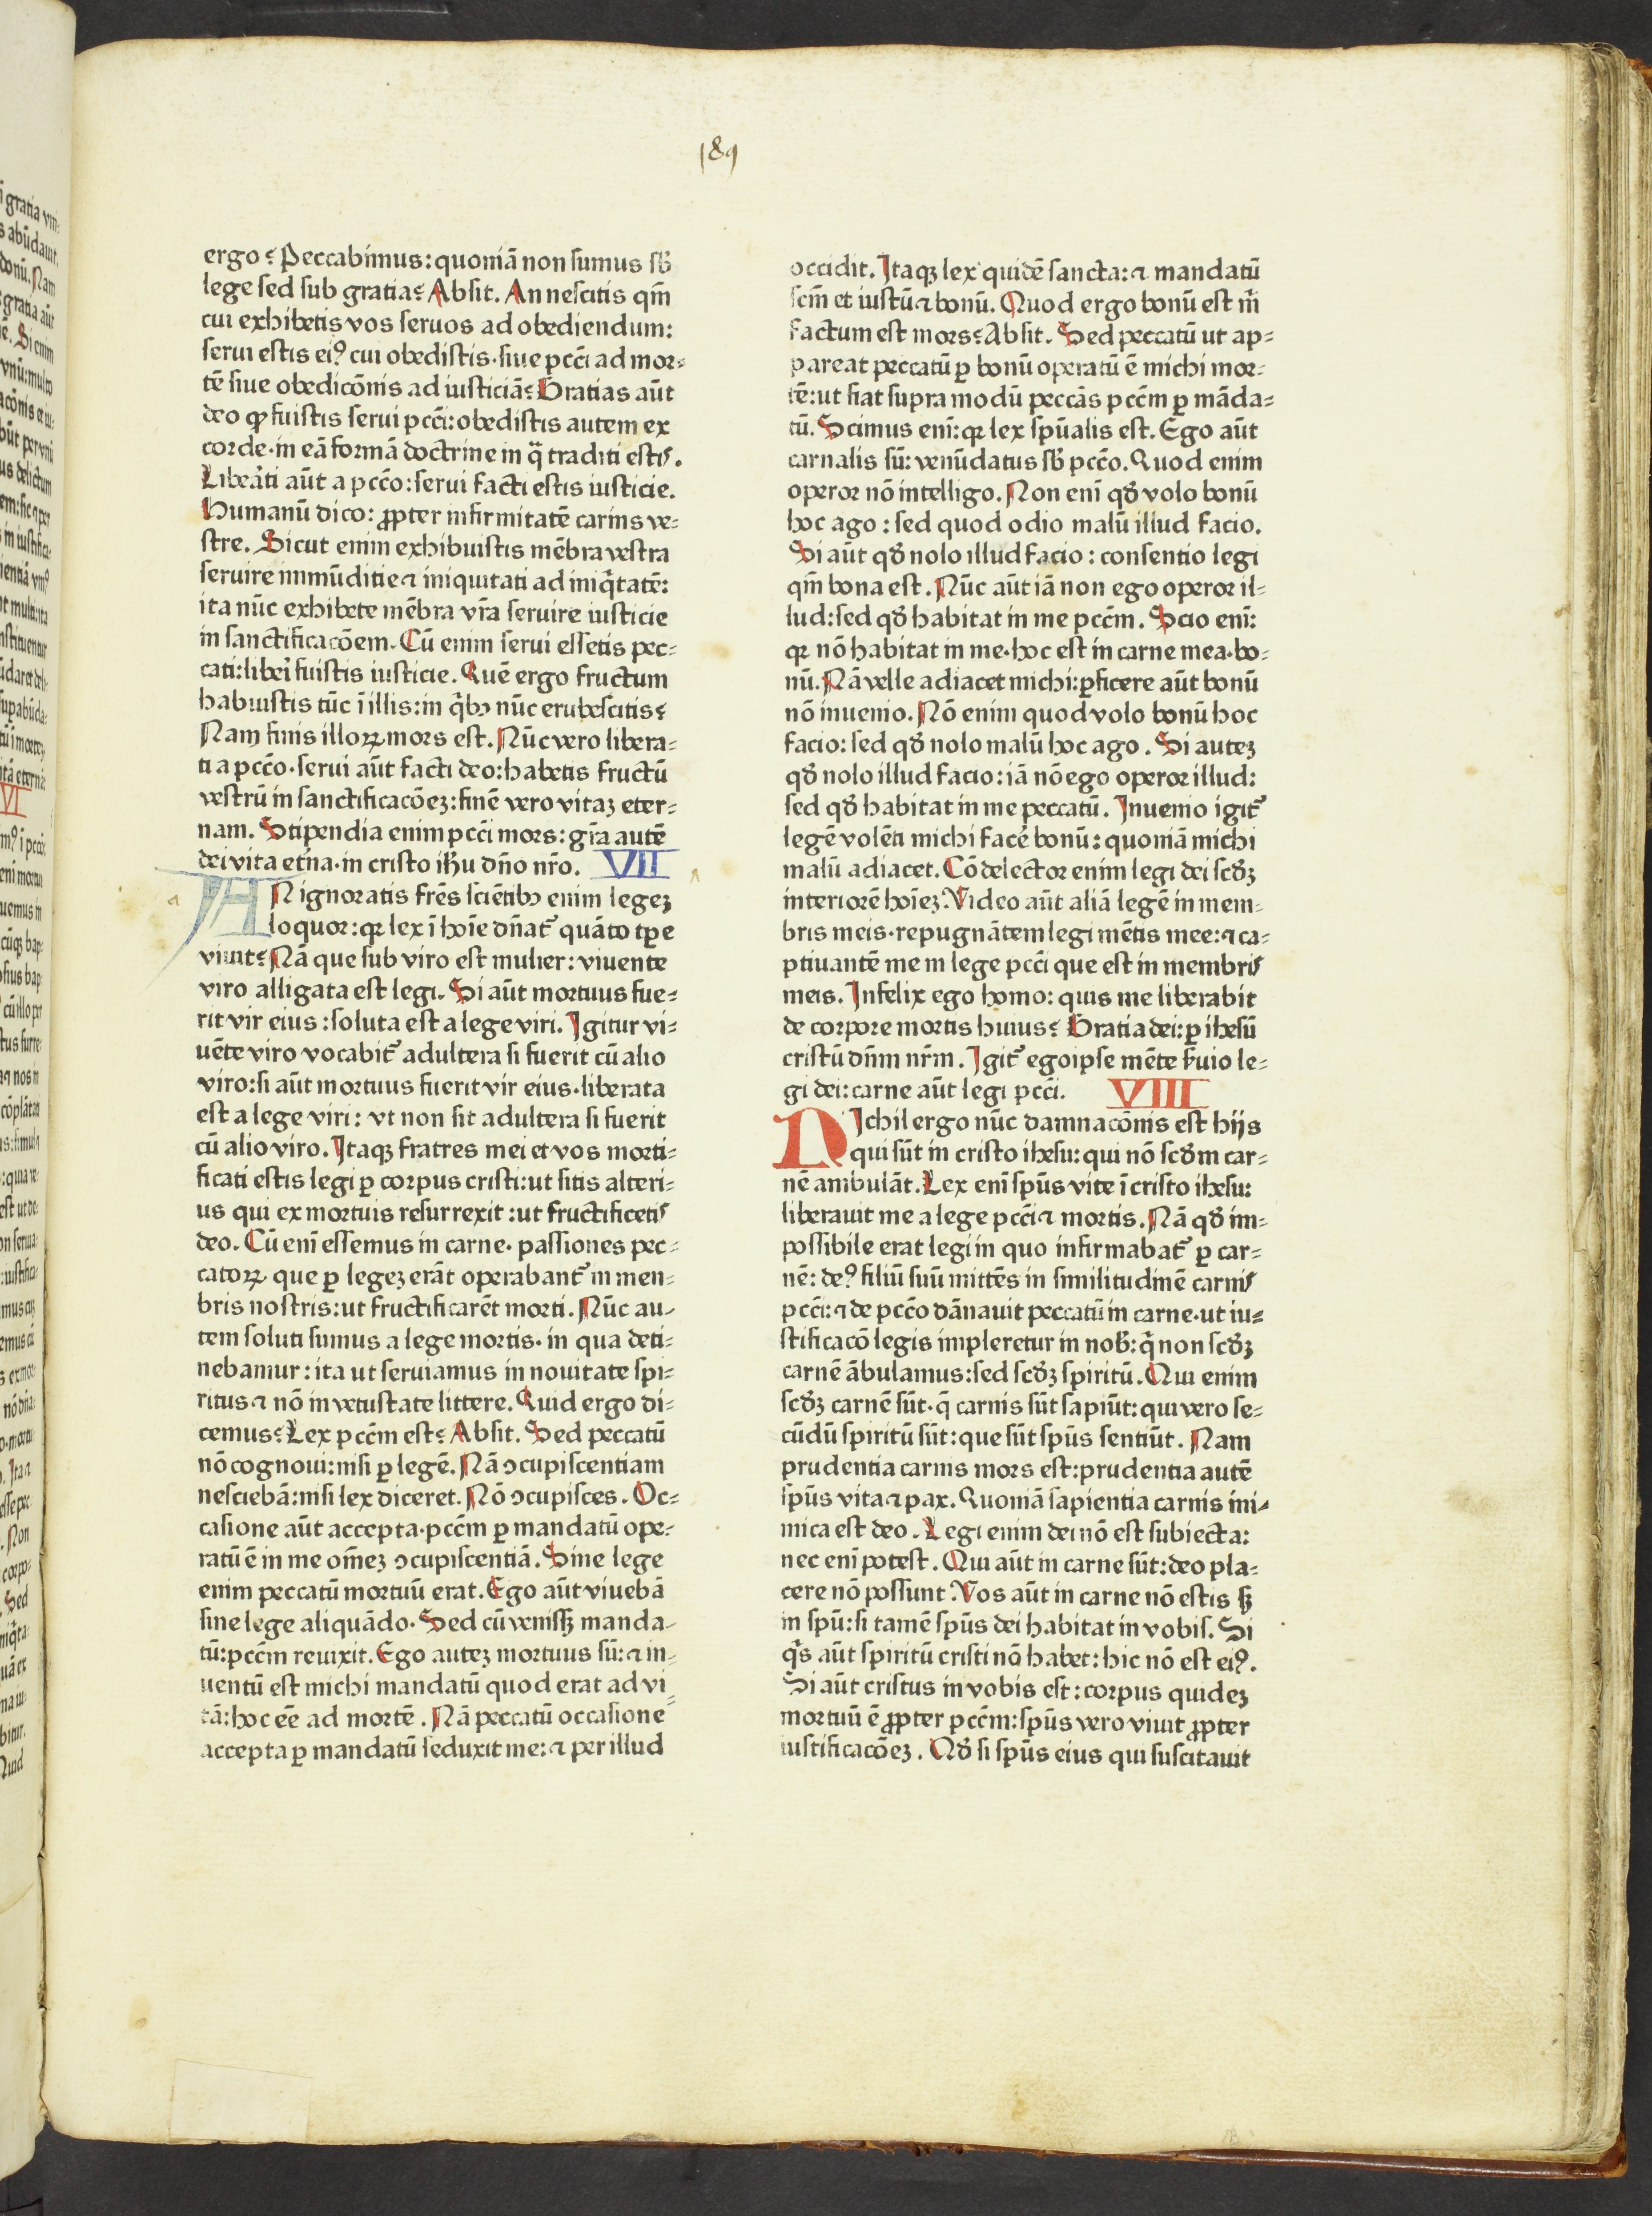 189
ergo? Peccabimus: quoniā non sumus sb̄
lege sed sub gratia? Absit. An nescitis qm̄
cui exhibetis vos seruos ad obediendum:
serui estis eiꝰ cui obedistis· siue pcc̄i ad mor=
tē siue obedicōnis ad iusticiā? Gratias aūt
deo ꝙ fuistis serui pcc̄i: obedistis autem ex
corde· in eā formā doctrine in q̄ traditi estis.
Liberati aūt a pcc̄o: serui facti estis iusticie.
Humanū dico: ꝓpter infirmitatē carnis ve=
stre. Sicut enim exhibuistis mēbra vestra
seruire inmūditie ⁊ iniquitati ad iniq̄tatē:
ita nūc exhibete mēbra vr̄a seruire iusticie
in sanctificacōem. Cū enim serui essetis pec=
cati: liberi fuistis iusticie. Quē ergo fructum
habuistis tūc ī illis: in q̄bꝫ nūc erubescitis?
Nam finis illoꝝ mors est. Nūc vero libera=
ti a pcc̄o· serui aūt facti deo: habetis fructū
vestrū in sanctificacōeꝫ: finē vero vitaꝫ eter=
nam. Stipendia enim pcc̄i mors: gr̄a autē
dei vita et̄na· in cristo ih̄u dn̄o nr̄o. VII
AN ignoratis fr̄es sciētibꝫ enim legeꝫ
loquor: qꝛ lex ī hoīe dn̄at̄ quāto tꝑe
viuit? Nā que sub viro est mulier: viuente
viro alligata est legi. Si aūt mortuus fue=
rit vir eius: soluta est a lege viri. Igitur vi=
uēte viro vocabit̄ adultera si fuerit cū alio
viro: si aūt mortuus fuerit vir eius· liberata
est a lege viri: vt non sit adultera si fuerit
cū alio viro. Itaqꝫ fratres mei et vos morti=
ficati estis legi ꝑ corpus cristi: ut sitis alteri=
us qui ex mortuis resurrexit: ut fructificetis
deo. Cū enī essemus in carne· passiones pec=
catoꝝ que ꝑ legeꝫ erāt operabant̄ in men=
bris nostris: ut fructificarēt morti. Nūc au=
tem soluti sumus a lege mortis· in qua deti=
nebamur: ita ut seruiamus in nouitate spi=
ritus ⁊ nō in vetustate littere. Quid ergo di=
cemus? Lex pcc̄m est? Absit. Sed peccatū
nō cognoui: nisi ꝑ legē. Nā ↄcupiscentiam
nesciebā: nisi lex diceret. Nō ↄcupisces. Oc=
casione aūt accepta· pcc̄m ꝑ mandatū ope=
ratū ē in me om̄eꝫ ↄcupiscentiā. Sine lege
enim peccatū mortuū erat. Ego aūt viuebā
sine lege aliquādo. Sed cū venissꝫ manda=
tū: pcc̄m reuixit. Ego auteꝫ mortuus sū: ⁊ in=
uentū est michi mandatū quod erat ad vi=
tā: hoc eē ad mortē. Nā peccatū occasione
accepta ꝑ mandatū seduxit me: ⁊ per illud
occidit. Itaqꝫ lex quidē sancta: ⁊ mandatū
scm̄ et iustū ⁊ bonū. Quod ergo bonū est m̄
factum est mors? Absit. Sed peccatū ut ap=
pareat peccatū ꝑ bonū operatū ē michi mor=
tē: ut fiat supra modū peccās pcc̄m ꝑ māda=
tū. Scimus enī: qꝛ lex spūalis est. Ego aūt
carnalis sū: venūdatus sb̄ pcc̄o. Quod enim
operor nō intelligo. Non enī qd̄ volo bonū
hoc ago: sed quod odio malū illud facio.
Si aūt qd̄ nolo illud facio: consentio legi
qm̄ bona est. Nūc aūt iā non ego operor il=
lud: sed qd̄ habitat in me pcc̄m. Scio enī:
qꝛ nō habitat in me· hoc est in carne mea· bo=
nū. Nā velle adiacet michi: ꝑficere aūt bonū
nō inuenio. Nō enim quod volo bonū hoc
facio: sed qd̄ nolo malū hoc ago. Si auteꝫ
qd̄ nolo illud facio: iā nō ego operor illud:
sed qd̄ habitat in me peccatū. Inuenio igit̄
legē volēti michi facē bonū: quoniā michi
malū adiacet. Cōdelector enim legi dei scd̄ꝫ
interiorē hoīeꝫ. Video aūt aliā legē in mem=
bris meis· repugnātem legi mētis mee: ⁊ ca=
ptiuantē me in lege pcc̄i que est in membris
meis. Infelix ego homo: quis me liberabit
de corpore mortis huius? Gratia dei: ꝑ ihesū
cristū dn̄m nr̄m. Igit̄ ego ipse mēte ẜuio le=
gi dei: carne aūt legi pcc̄i. VIII
NIchil ergo nūc damnacōnis est hijs
qui sūt in cristo ihesu: qui nō scd̄m car=
nē ambulāt. Lex enī spūs vite ī cristo ihesu:
liberauit me a lege pcc̄i ⁊ mortis. Nā qd̄ im=
possibile erat legi in quo infirmabat̄ ꝑ car=
nē: deꝰ filiū suū mittēs in similitudinē carnis
pcc̄i: ⁊ de pcc̄o dānauit peccatū in carne· ut iu=
stificacō legis impleretur in nob̄: q̄ non scd̄ꝫ
carnē ābulamus: sed scd̄ꝫ spiritū. Qui enim
scd̄ꝫ carnē sūt· q̄ carnis sūt sapiūt: qui vero se=
cūdū spiritū sūt: que sūt spūs sentiūt. Nam
prudentia carnis mors est: prudentia autē
spūs vita ⁊ pax. Quoniā sapientia carnis ini=
mica est deo. Legi enim dei nō est subiecta:
nec enī potest. Qui aūt in carne sūt: deo pla=
cere nō possunt. Vos aūt in carne nō estis sꝫ
in spū: si tamē spūs dei habitat in vobis. Si
q̄s aūt spiritū cristi nō habet: hic nō est eiꝰ.
Si aūt cristus in vobis est: corpus quideꝫ
mortuū ē ꝓpter pcc̄m: spūs vero viuit ꝓpter
iustificacōeꝫ. Qd̄ si spūs eius qui suscitauit